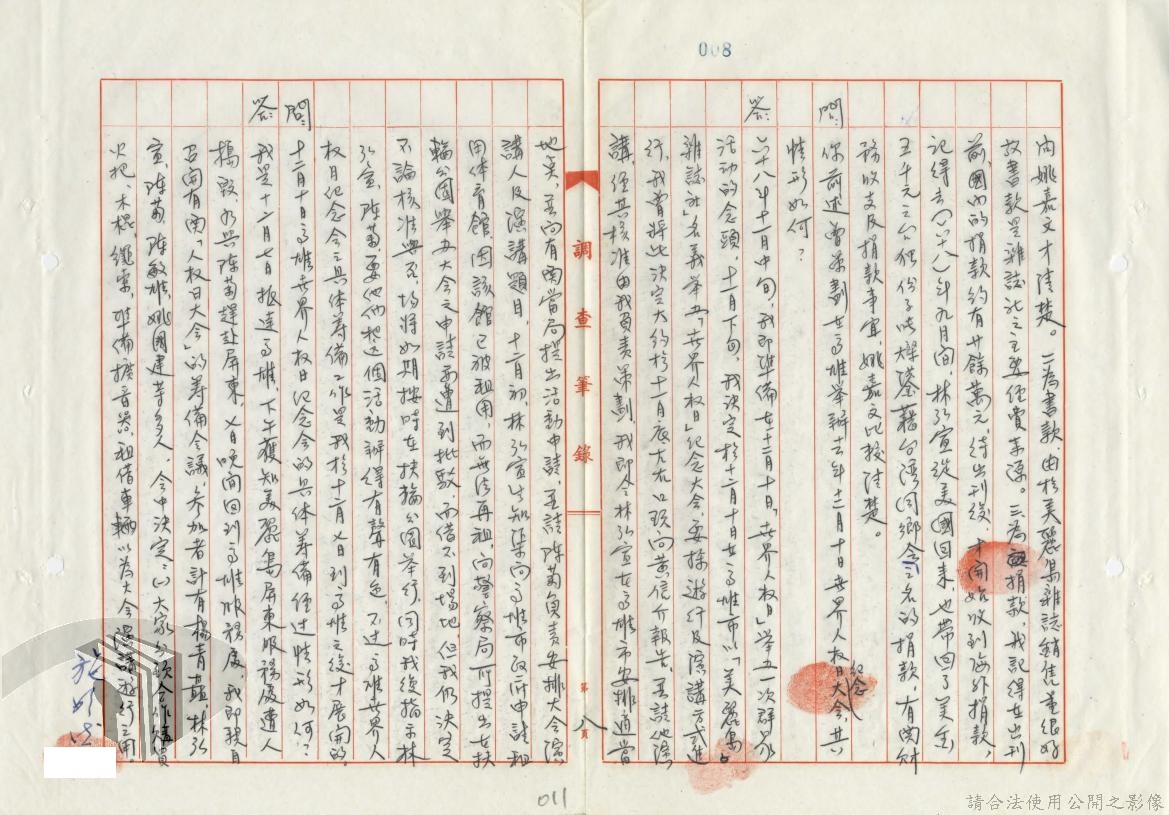 008
內姚嘉文才清楚。二為書款由於美麗島雜誌銷售量很好
故書款是雜誌社之主要經費來源。三為捐款,我記得在出刊
前,國內的捐款約有廿餘萬元,待出刊後,才開始收到海外捐款,
記得去(六十八)年九月間,林弘宣從美國回來也帶回了美金
五千元之台獨份子張燦鍙藉台灣同鄉會之名的捐款,有關財
務收支及捐款事宜,姚嘉文比較清楚。
問:你前述曾策劃在高雄舉辦去年十二月十日世界人權日紀念大會,其
情形如何?
答:六十八年十一月中旬,我即準備在十二月十日「世界人權日」舉辦一次群眾
活動的念頭,十一月下旬,我決定於十二月十日在高雄市以「美麗島
雜誌社」名義舉辦「世界人權日」紀念大會,要採遊行及演講方式進
行,我曾將此決定大約於十一月底左右口頭向黃信介報告,並請他演
講,經其核准由我負責策劃,我即令林弘宣在高雄市安排適當
調查筆錄
第八頁
地点,並向有關當局提出活動申請,並請陳菊負責安排大會演
講人及演講題目,十二月初,林弘宣告知渠向高雄市政府申請租
用体育館,因該館已被租用,而無法再租,向警察局所提出在扶
輪公園舉辦大會之申請亦遭到批駁,而借不到場地,但我仍決定
不論核准與否,均將如期按時在扶輪公園舉行,同時我復指示林
弘宣、陳菊要他們把這個活動辦得有聲有色,不过高雄世界人
權日紀念會之具体籌備工作是我於十二月七日到高雄之後才展開的。
問:十二月十日高雄世界人權日紀念會的具体籌備經过情形如何?
答:我是十二月七日抵達高雄,下午獲知美麗島屏東服務處遭人
搗毀,乃與陳菊趕赴屏東,七日晚間回到高雄服務處,我即親自
召開有關「人權日大會」的籌備會議,參加者計有楊青矗、林弘
宣、陳菊、陳敏雄、姚國建等多人,會中決定:㈠大家分頭合作購買
火把、木棍、繩索,準備擴音器,租借車輛以為大會演講遊行之用。
施明德
011
請合法使用公開之影像